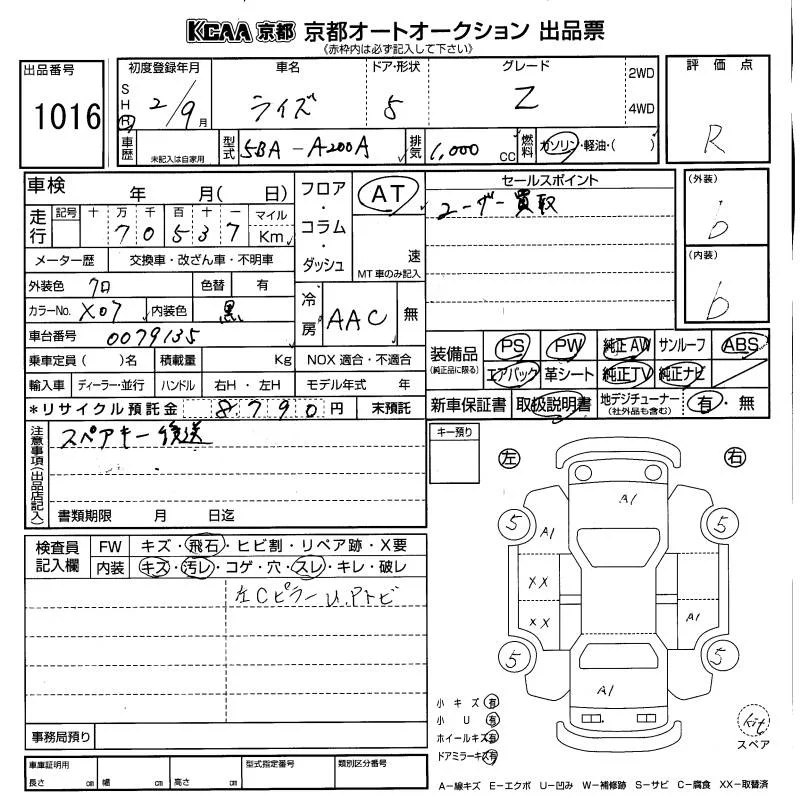 KCAA 京都 京都オートオークション 出品票
(赤枠内は必ず記入して下さい)
出品番号
1016
初度登録年月 車名 ドア・形状 グレード
S
H
R 2/9月 ライズ 5 Z 2WD
4WD
車歴 未記入は自家用 型式 5BA-A200A 排気 1,000 CC 燃料 ガソリン・軽油・( )
評価点
R
車検 年 月( 日)
走行 記号 十 万 千 百 十 一 マイル
7 0 5 3 7 Km
メーター歴 交換車・改ざん車・不明車
外装色 クロ 色替 有
カラーNo. X07 内装色 黒
車台番号 0079135
乗車定員( )名 積載量 Kg NOX 適合・不適合
輸入車 ディーラー・並行 ハンドル 右H・左H モデル年式 年
*リサイクル預託金 8790円 未預託
フロア・コラム・ダッシュ
AT
速
MT車のみ記入
冷房 AAC 無
セールスポイント
ユーザー買取
(外装)
(内装)
b
装備品
(純正品に限る)
PS PW 純正AW サンルーフ ABS
エアバック 革シート 純正TV 純正ナビ
新車保証書 取扱説明書 地デジチューナー
(社外品も含む) 有・無
注意事項(出品店記入)
スペアキー後送
書類期限 月 日迄
キー預り
左 右
検査員記入欄 FW キズ・飛石・ヒビ割・リペア跡・X要
内装 キズ・汚レ・コゲ・穴・スレ・キレ・破レ
左Cピラー U.Pトビ
A1
5 5
A1
XX
XX A1
5 5
A1
小キズ 有
小U 有
ホイールキズ 有
ドアミラーキズ 有
kit
スペア
事務局預り
車庫証明用 型式指定番号 類別区分番号
長さ cm 幅 cm 高さ cm
A-線キズ E-エクボ U-凹み W-補修跡 S-サビ C-腐食 XX-取替済